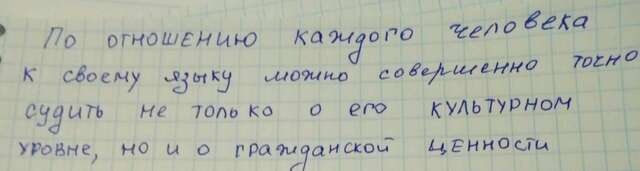 По отношению каждого человека
к своему языку можно совершенно точно
судить не только о его культурном
уровне, но и о гражданской ценности